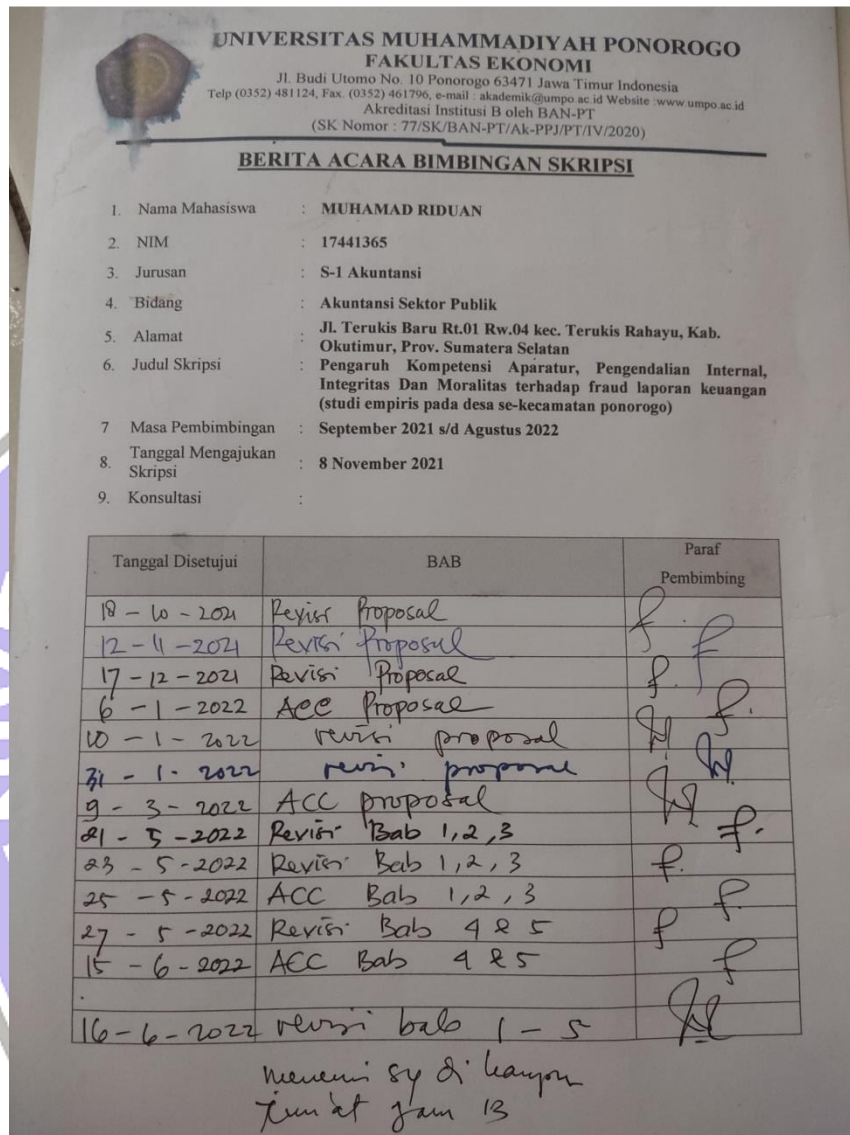 UNIVERSITAS MUHAMMADIYAH PONOROGO
FAKULTAS EKONOMI
Jl. Budi Utomo No. 10 Ponorogo 63471 Jawa Timur Indonesia
Telp (0352) 481124, Fax. (0352) 461796, e-mail : akademik@umpo.ac.id Website :www.umpo.ac.id
Akreditasi Institusi B oleh BAN-PT
(SK Nomor : 77/SK/BAN-PT/Ak-PPJ/PT/IV/2020)
BERITA ACARA BIMBINGAN SKRIPSI
1. Nama Mahasiswa : MUHAMAD RIDUAN
2. NIM : 17441365
3. Jurusan : S-1 Akuntansi
4. Bidang : Akuntansi Sektor Publik
5. Alamat : Jl. Terukis Baru Rt.01 Rw.04 kec. Terukis Rahayu, Kab.
Okutimur, Prov. Sumatera Selatan
6. Judul Skripsi : Pengaruh Kompetensi Aparatur, Pengendalian Internal,
Integritas Dan Moralitas terhadap fraud laporan keuangan
(studi empiris pada desa se-kecamatan ponorogo)
7 Masa Pembimbingan : September 2021 s/d Agustus 2022
8. Tanggal Mengajukan Skripsi : 8 November 2021
9. Konsultasi :
Tanggal Disetujui BAB Paraf Pembimbing
18 - 10 - 2021 Revisi Proposal
12 - 11 - 2021 Revisi Proposal
17 - 12 - 2021 Revisi Proposal
6 - 1 - 2022 Acc Proposal
10 - 1 - 2022 revisi proposal
31 - 1 - 2022 revisi proposal
9 - 3 - 2022 ACC proposal
21 - 5 - 2022 Revisi Bab 1, 2, 3
23 - 5 - 2022 Revisi Bab 1, 2, 3
25 - 5 - 2022 ACC Bab 1, 2, 3
27 - 5 - 2022 Revisi Bab 4 & 5
15 - 6 - 2022 ACC Bab 4 & 5
16 - 6 - 2022 revisi bab 1 - 5
sy di
jum'at jam 13